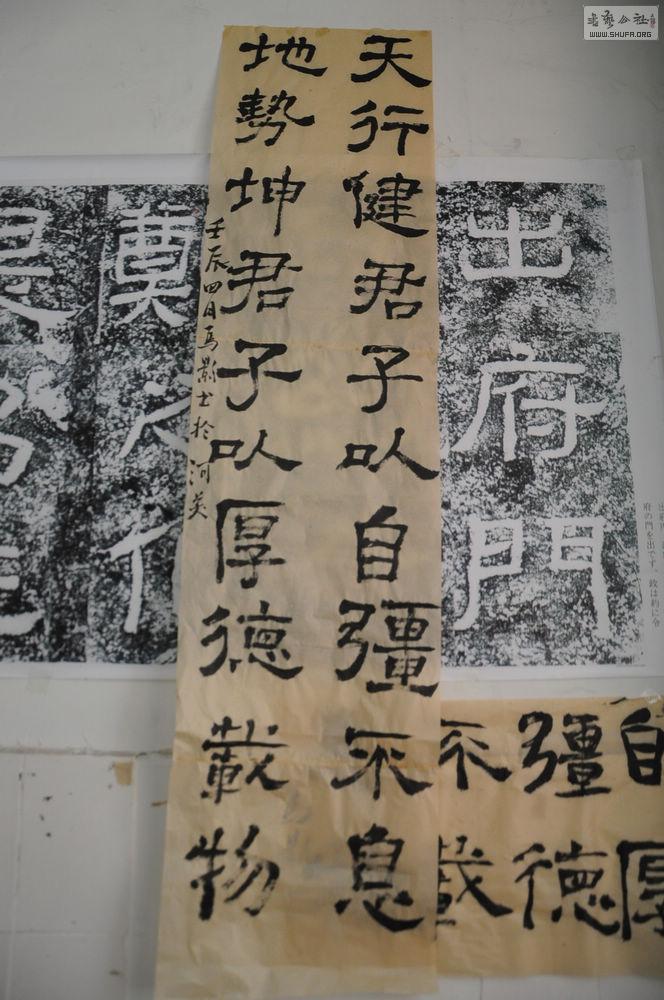 书艺公社
WWW.SHUFA.ORG
天行健君子以自彊不息
地勢坤君子以厚德載物
壬辰四月馬影
出府門
府の門を出です。政は約に令
自厚
彊德
不載